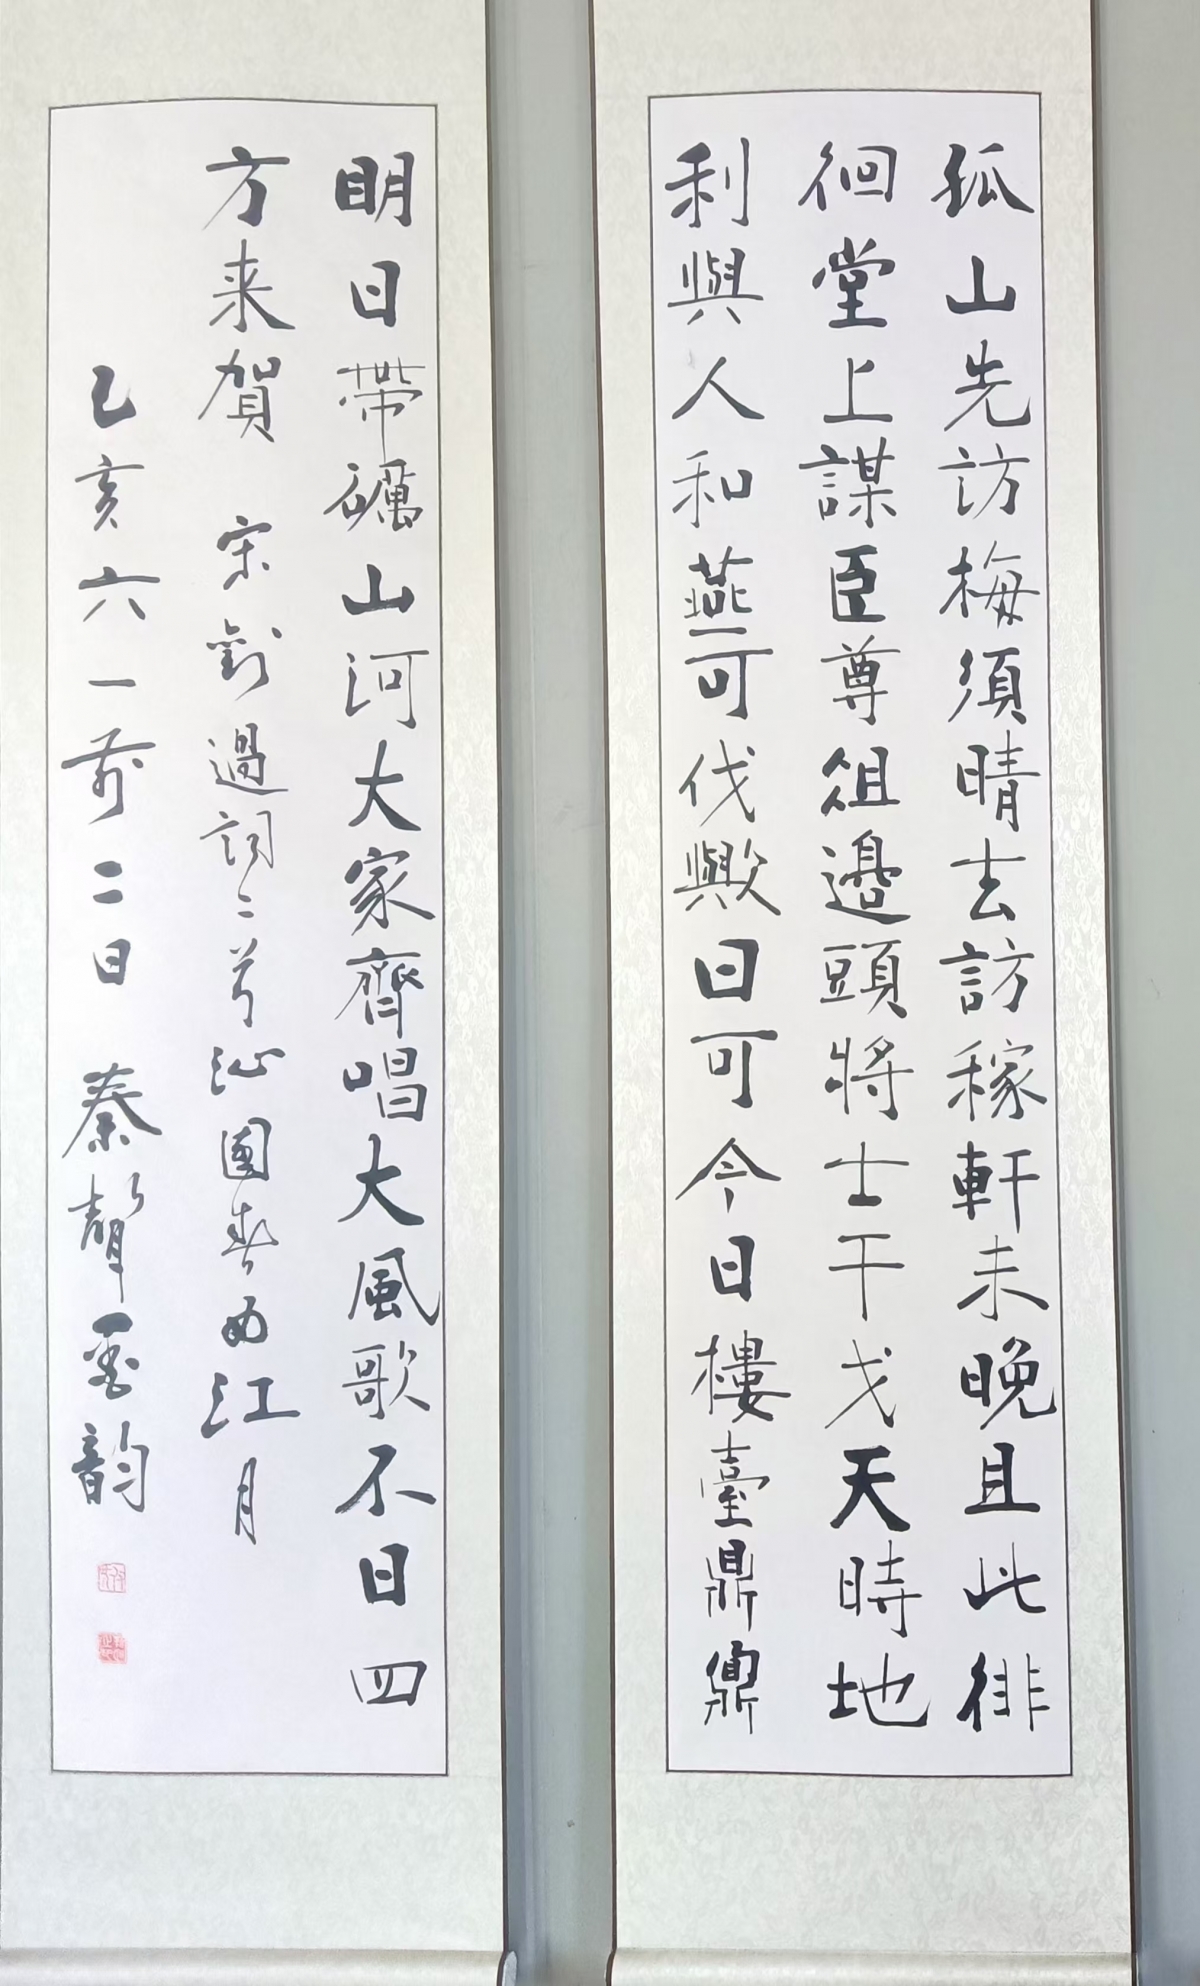 孤山先訪梅須晴去訪稼軒未晚且此徘
徊堂上謀臣尊俎邊頭將士干戈天時地
利與人和燕可伐歟曰可今日樓臺鼎鼐
明日帶礪山河大家齊唱大風歌不日四
方来賀
宋劉過詞二首沁園春西江月
乙亥六一前二日 秦聲墨韵